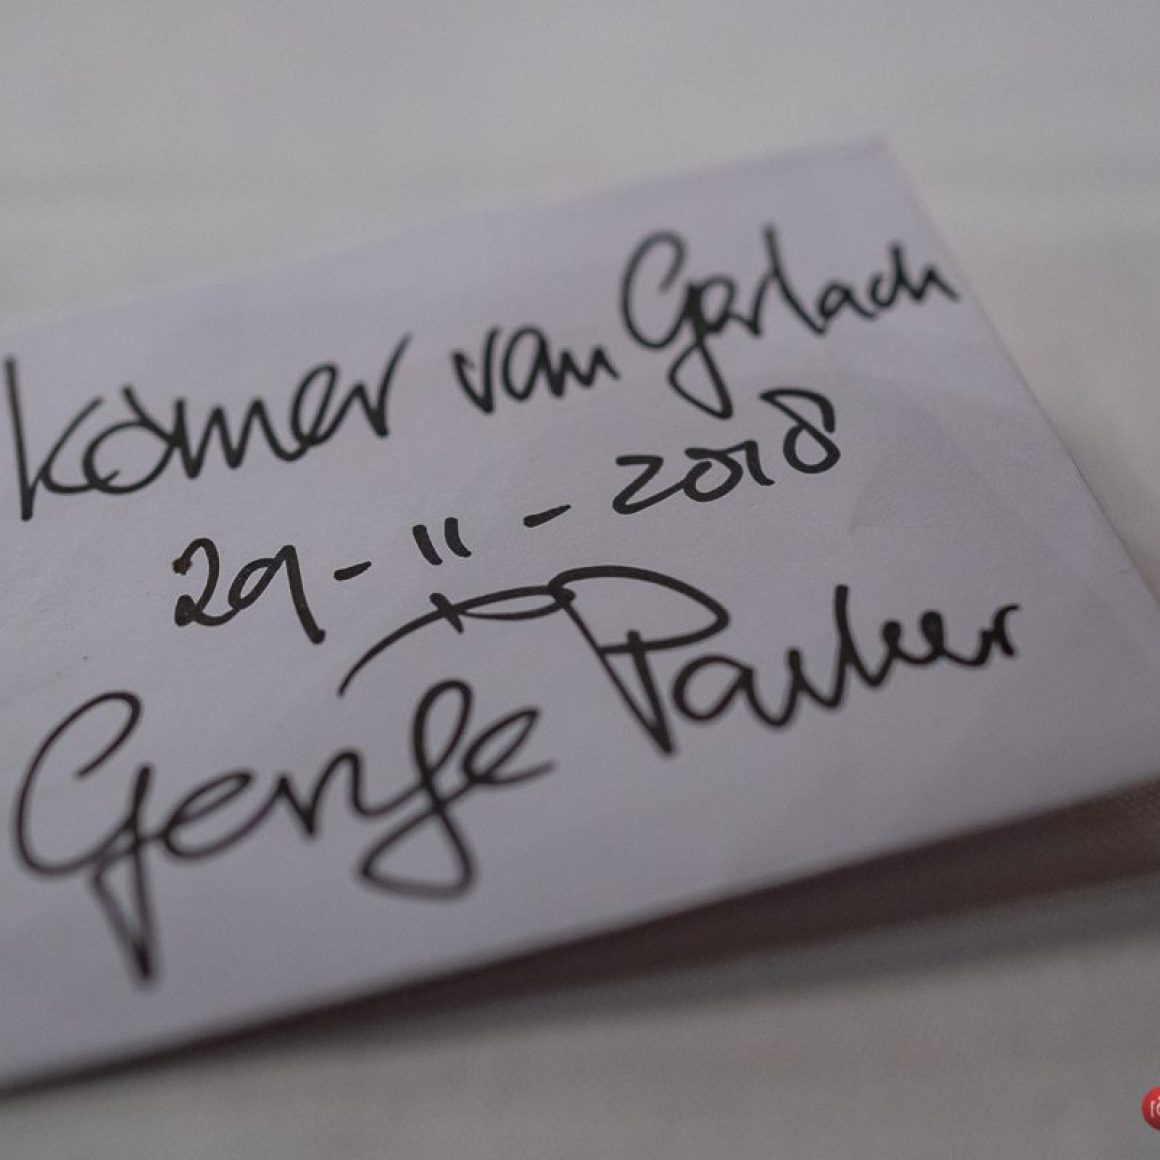 Kömer van Gorlach
29-11-2018
George Parker